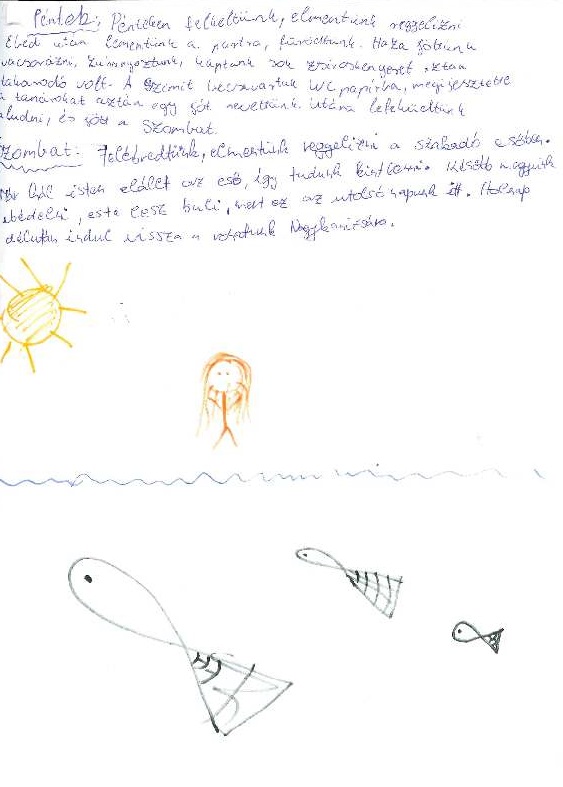 Péntek: Pénteken felkeltünk, elmentünk reggelizni
Ebéd után lementünk a partra, fürödtünk. Haza jöttünk
vacsorázni, zsíroskenyeret, aztán
takarodó volt. A Szemit becsavartuk WC papírba, megijesztette
a tanárokat aztán egy jót nevettünk. Utána lefeküdtünk
aludni, és jött a Szombat.
Szombat: Felébredtünk, elmentünk reggelizni a szakadó esőben.
Hál' isten elállt az eső, így tudunk kint lenni. Később megyünk
ebédelni, este lesz buli, mert ez az utolsó napunk itt. Holnap
délután indul vissza a vonatunk Nagykanizsára.